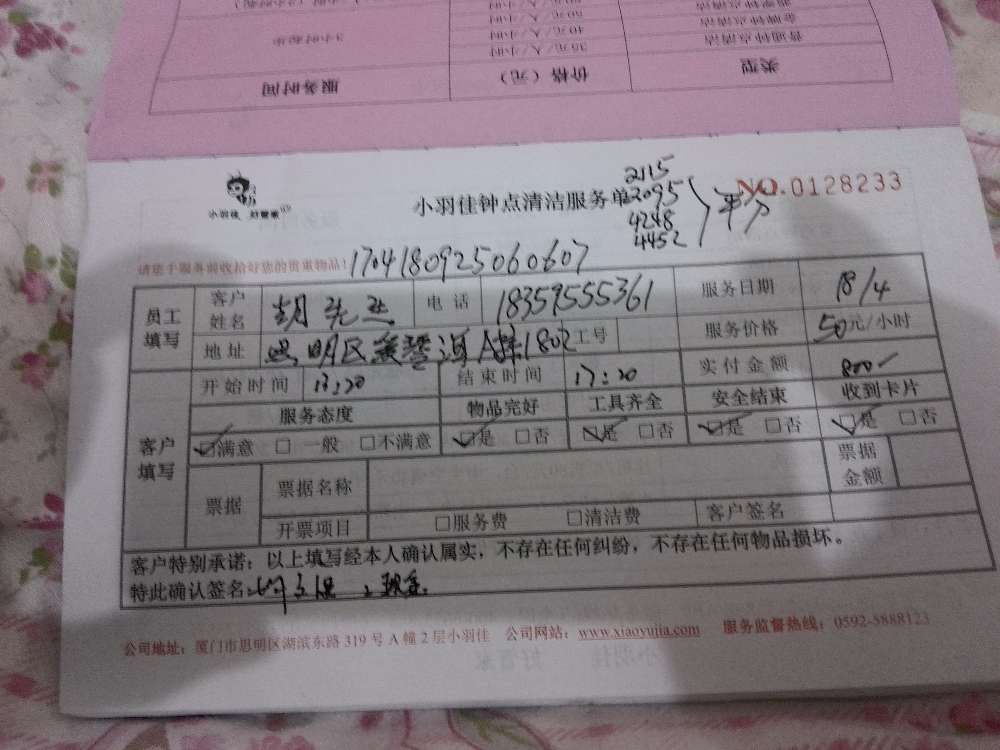 服务时间 价格（元） 类型
3小时起步 35元/人/小时 普通钟点清洁
40元/人/小时 金牌钟点清洁
50元/人/小时
小羽佳 好管家
小羽佳钟点清洁服务单
2115
2095
4248
4452
平分
NO.0128233
请您于服务前收拾好您的贵重物品！
1704180925060607
员工填写 客户姓名 胡先生 电话 18359555361 服务日期 18/4
地址 思明区 A栋1802 工号 服务价格 50元/小时
客户填写 开始时间 13:20 结束时间 17:20 实付金额 800
服务态度 物品完好 工具齐全 安全结束 收到卡片
☑满意 □一般 □不满意 ☑是 □否 ☑是 □否 ☑是 □否 ☑是 □否
票据 票据名称 票据金额
开票项目 □服务费 □清洁费 客户签名
客户特别承诺：以上填写经本人确认属实，不存在任何纠纷，不存在任何物品损坏。
特此确认签名： 现金
公司地址：厦门市思明区湖滨东路319号A幢2层小羽佳 公司网站：www.xiaoyujia.com 服务监督热线：0592-5888123